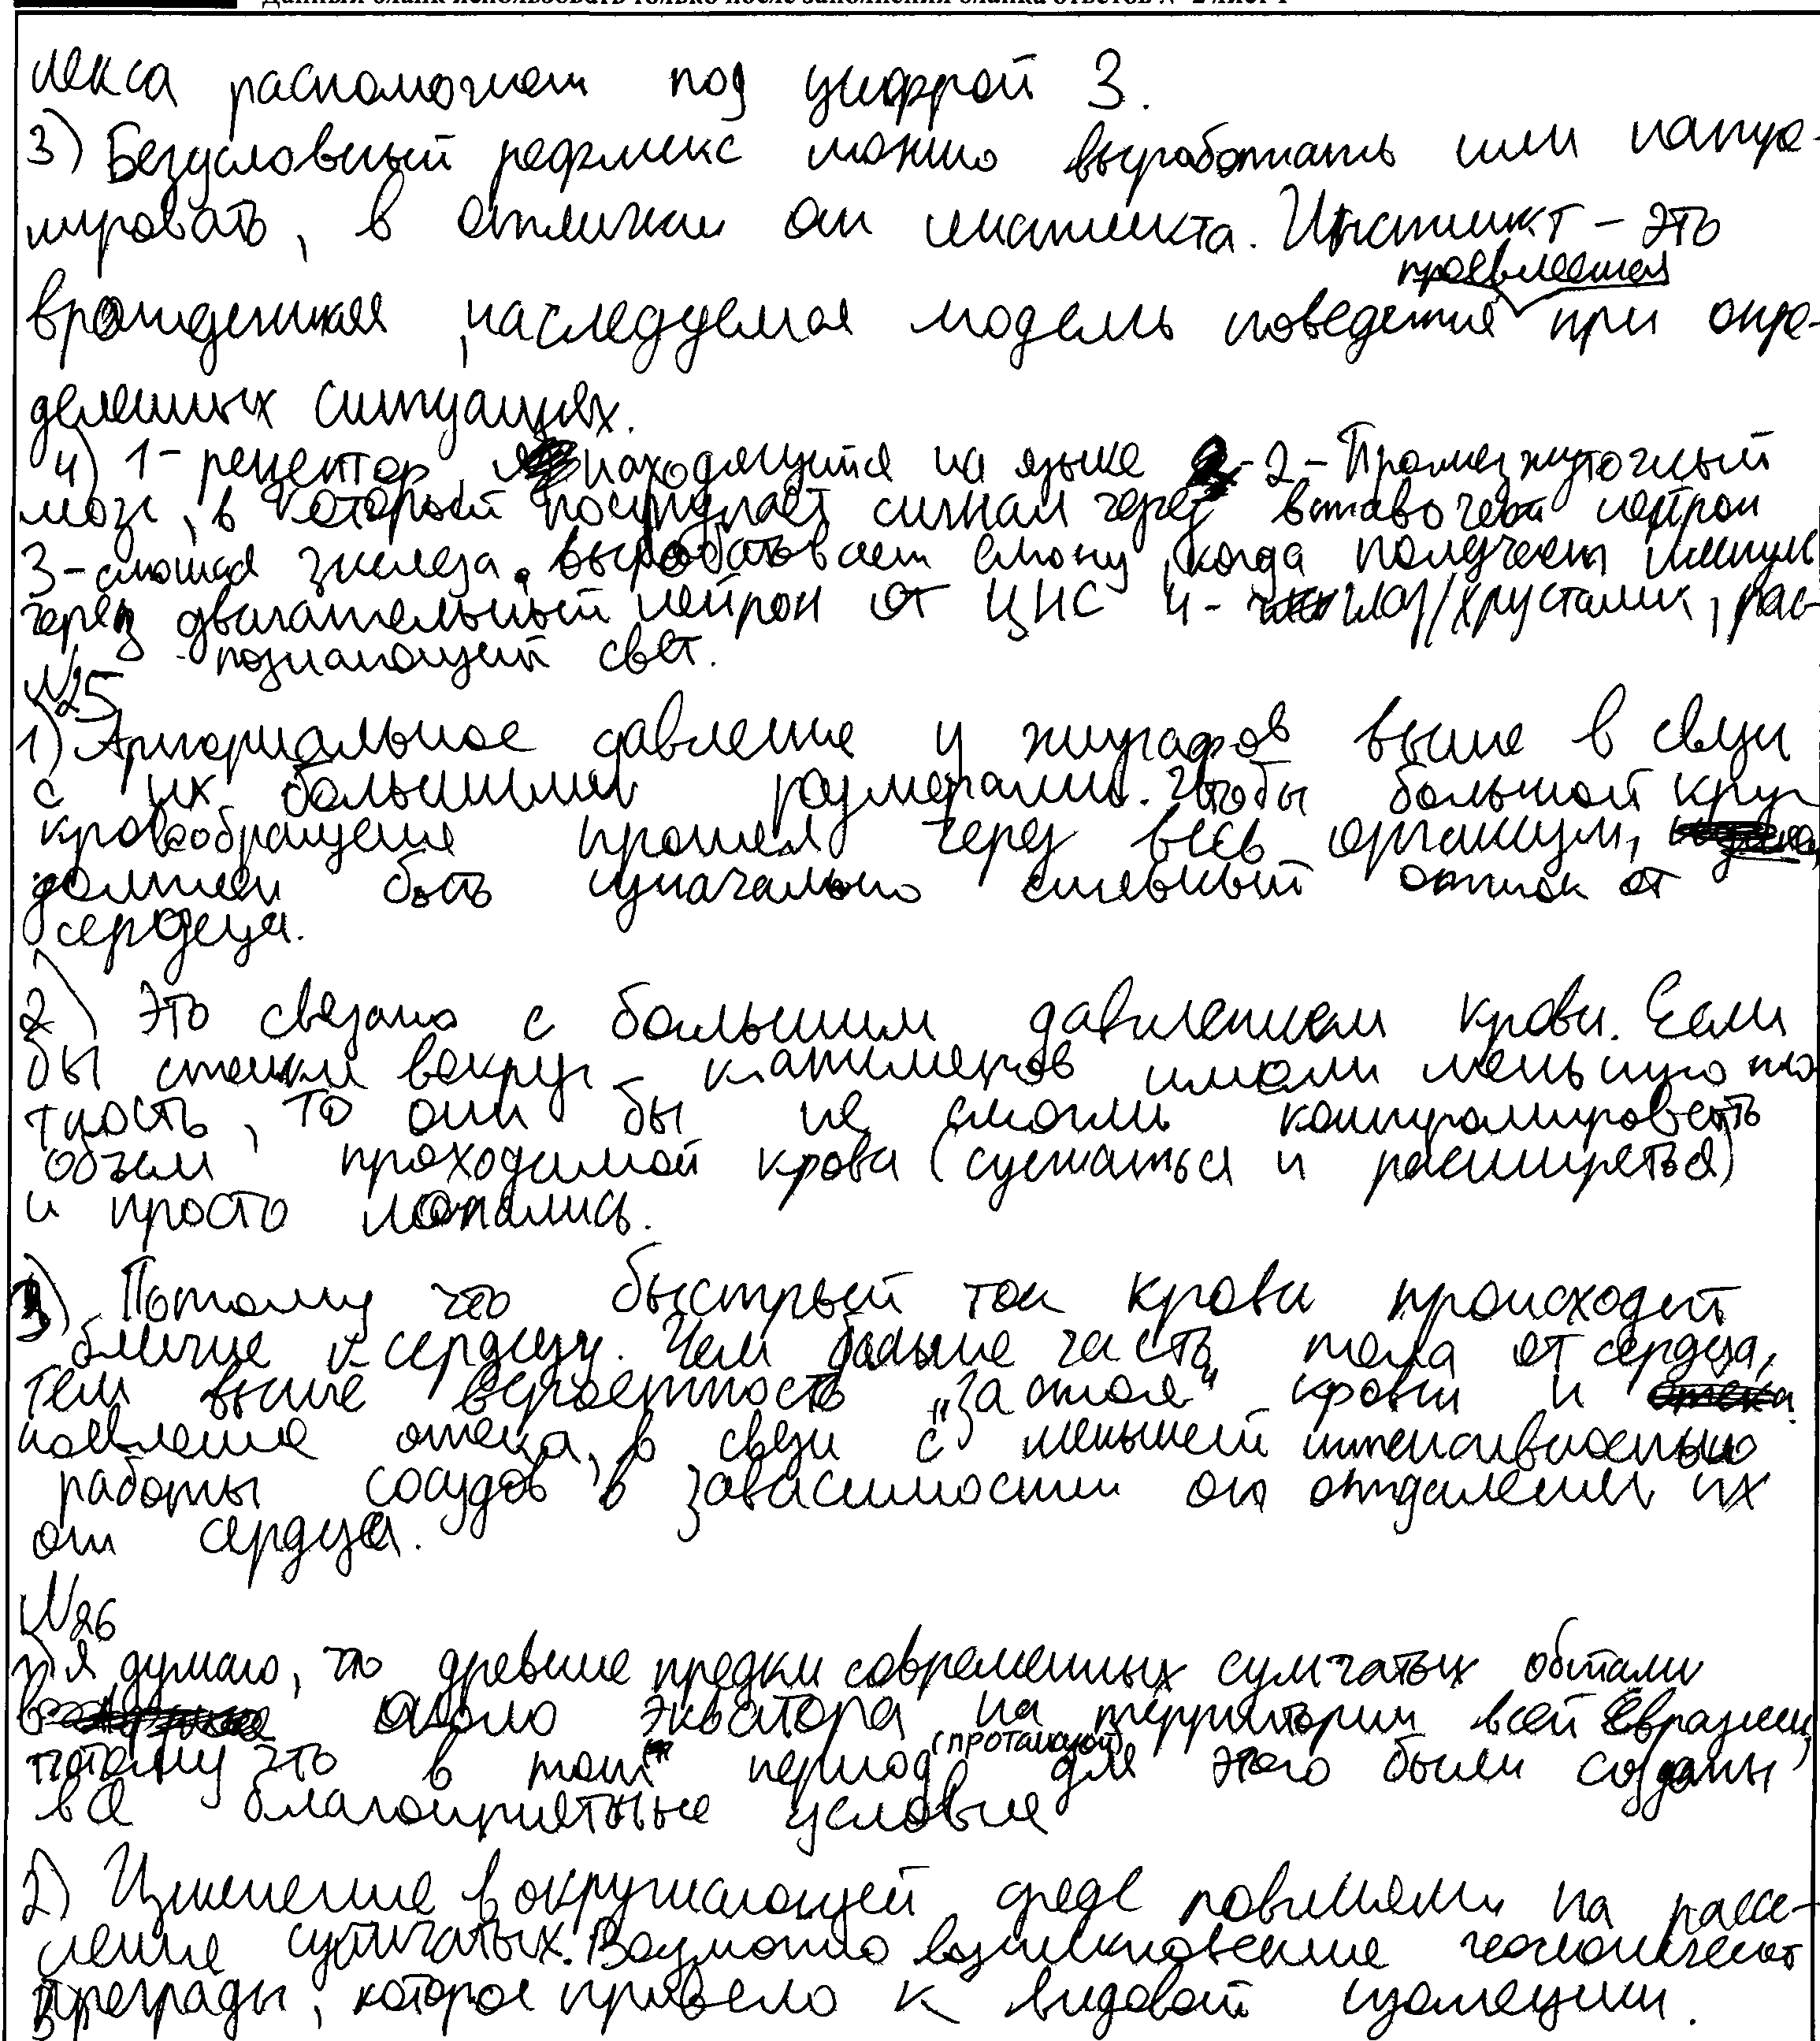 лекса расположен под цифрой 3.
3) Безусловный рефлекс можно выработать или натре-
нировать, в отличии от инстинкта. Инстинкт – это
проявляемая
врожденная, наследуемая модель поведения при опре-
деленных ситуациях.
4) 1- рецептор, находящийся на языке 2 - Промежуточный
мозг, в который поступает сигнал через вставочный нейрон
3-слюная железа, вырабатывает слюну, когда получает импул
через двигательный нейрон от ЦНС 4- глаз/хрусталик, рас-
познающий свет.
№25
1) Артериальное давление у жирафов выше в связи
с их большими размерами. Чтобы большой круг
кровообращения прошел через весь организм,
должен быть изначально сильный отток от
сердеца.
2) Это связано с большим давлением крови. Если
бы стенки вокруг капиляров имели меньшую пло
тность, то они бы не смогли контролировать
объем проходимой крови (сужаться и расширяться)
и просто лопались.
3) Потому что быстрый ток крови происходит
ближе к сердцу. Чем дальше часть тела от сердца,
тем выше вероятность "застоя" крови и
появление отека, в связи с меньшей интенсивностью
работы сосудов в зависимости от отдаления их
от сердца.
№26
1) Я думаю, что древние предки современных сумчатых обитали
около экватора на территории всей Евразии,
(протаназой)
потому что в тот период для этого были созданы
все благоприятные условия
2) Изменение в окружающей среде повлияли на рассе-
ление сумчатых. Возможно возникновение геологической
преграды, которое привело к видовой изоляции.
3)